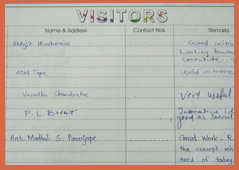 VISITORS
Name & Address Contact Nos. Remarks
Good initia
Looking forwar
contribute
Atul Tope
Vasudha Chandratre Very useful
P. L. BHAT Innovative id
good as social
Arch. Madhuli S. Paranjape Great Work - R
the concept wh
need of today